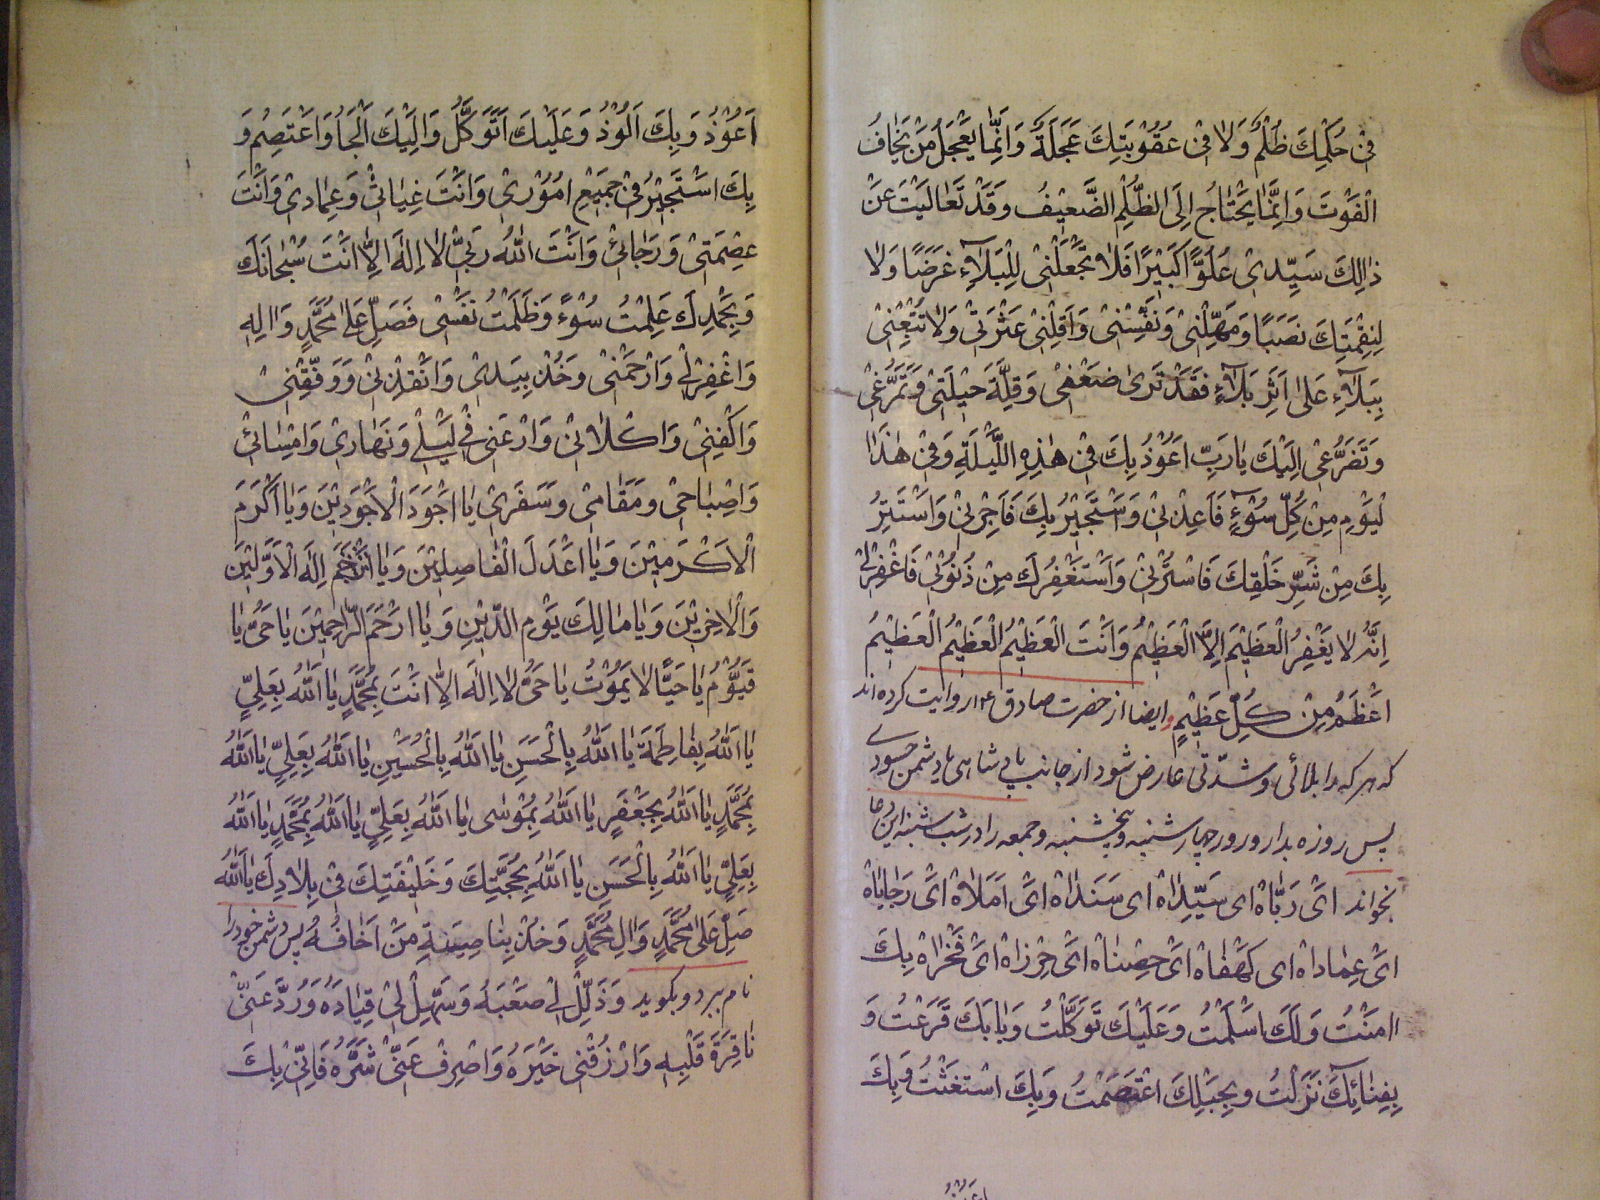 فِىْ حُكْمِكَ ظُلْمٌ وَلَا فِىْ عُقُوْبَتِكَ عَجَلَةٌ وَاِنَّمَا يَعْجَلُ مَنْ يَخَافُ
الْفَوْتَ وَاِنَّمَا يَحْتَاجُ اِلَى الظُّلْمِ الضَّعِيْفُ وَقَدْ تَعَالَيْتَ عَنْ
ذٰلِكَ سَيِّدِىْ عُلُوًّا كَبِيْرًا فَلَا تَجْعَلْنِىْ لِلْبَلَاۤءِ غَرَضًا وَلَا
لِنِقْمَتِكَ نَصَبًا وَمَهِّلْنِىْ وَنَفِّسْنِىْ وَاَقِلْنِىْ عَثْرَتِىْ وَلَا تُتْبِعْنِىْ
بِبَلَاۤءٍ عَلٰى اَثَرِ بَلَاۤءٍ فَقَدْ تَرٰى ضَعْفِىْ وَقِلَّةَ حِيْلَتِىْ وَتَمَرُّغِىْ
وَتَضَرُّعِىْ اِلَيْكَ يَا رَبِّ اَعُوْذُ بِكَ فِىْ هٰذِهِ اللَّيْلَةِ وَفِىْ هٰذَا
لْيَوْمِ مِنْ كُلِّ سُوْۤءٍ فَاَعِذْنِىْ وَاَسْتَجِيْرُ بِكَ فَاَجِرْنِىْ وَاَسْتَتِرُ
بِكَ مِنْ شَرِّ خَلْقِكَ فَاسْتُرْنِىْ وَاَسْتَغْفِرُكَ مِنْ ذُنُوْبِىْ فَاغْفِرْلِىْ
اِنَّهُ لَا يَغْفِرُ الْعَظِيْمَ اِلَّا الْعَظِيْمُ وَاَنْتَ الْعَظِيْمُ الْعَظِيْمُ الْعَظِيْمُ
اَعْظَمُ مِنْ كُلِّ عَظِيْمٍ وايضا از حضرت صادق روايت كرده اند
كه هر كه را بلائى و شدّتى عارض شود از جانب پادشاهى يا دشمن حسودى
پس روزه بدارد روز چهارشنبه و پنجشنبه و جمعه را در شب شنبه اين دعا
بخواند اَىْ رَبَّاهْ اَىْ سَيِّدَاهْ اَىْ سَنَدَاهْ اَىْ اَمَلَاهْ اَىْ رَجَايَاهْ
اَىْ عِمَادَاهْ اَىْ كَهْفَاهْ اَىْ حِصْنَاهْ اَىْ حِرْزَاهْ اَىْ فَخْرَاهْ بِكَ
اٰمَنْتُ وَلَكَ اَسْلَمْتُ وَعَلَيْكَ تَوَكَّلْتُ وَبَابَكَ قَرَعْتُ وَ
بِفِنَائِكَ نَزَلْتُ وَبِحَبْلِكَ اعْتَصَمْتُ وَبِكَ اسْتَغَثْتُ وَبِكَ
اَعُوْذُ
اَعُوْذُ وَبِكَ اَلُوْذُ وَعَلَيْكَ اَتَوَكَّلُ وَاِلَيْكَ اَلْجَاُ وَاَعْتَصِمُ وَ
بِكَ اَسْتَجِيْرُ فِىْ جَمِيْعِ اُمُوْرِىْ وَاَنْتَ غِيَاثِىْ وَعِمَادِىْ وَاَنْتَ
عِصْمَتِىْ وَرَجَائِىْ وَاَنْتَ اللّٰهُ رَبِّىْ لَا اِلٰهَ اِلَّا اَنْتَ سُبْحَانَكَ
وَبِحَمْدِكَ عَمِلْتُ سُوْءً وَظَلَمْتُ نَفْسِىْ فَصَلِّ عَلٰى مُحَمَّدٍ وَاٰلِهِ
وَاغْفِرْلِىْ وَارْحَمْنِىْ وَخُذْ بِيَدِىْ وَانْقِذْنِىْ وَوَفِّقْنِىْ
وَاكْفِنِىْ وَاكْلَانِىْ وَارْعَنِىْ فِىْ لَيْلِىْ وَنَهَارِىْ وَامْسَائِىْ
وَاصْبَاحِىْ وَمَقَامِىْ وَسَفَرِىْ يَا اَجْوَدَ الْاَجْوَدِيْنَ وَيَا اَكْرَمَ
الْاَكْرَمِيْنَ وَيَا اَعْدَلَ الْفَاصِلِيْنَ وَيَا اِلٰهَ الْاَوَّلِيْنَ
وَالْاٰخِرِيْنَ وَيَا مَالِكَ يَوْمِ الدِّيْنِ وَيَا اَرْحَمَ الرَّاحِمِيْنَ يَا حَىُّ يَا
قَيُّوْمُ يَا حَيًّا لَا يَمُوْتُ يَا حَىُّ لَا اِلٰهَ اِلَّا اَنْتَ بِمُحَمَّدٍ يَا اَللّٰهُ بِعَلِىٍّ
يَا اَللّٰهُ بِفَاطِمَةَ يَا اَللّٰهُ بِالْحَسَنِ يَا اَللّٰهُ بِالْحُسَيْنِ يَا اَللّٰهُ بِعَلِىٍّ يَا اَللّٰهُ
بِمُحَمَّدٍ يَا اَللّٰهُ بِجَعْفَرٍ يَا اَللّٰهُ بِمُوْسٰى يَا اَللّٰهُ بِعَلِىٍّ يَا اَللّٰهُ بِمُحَمَّدٍ يَا اَللّٰهُ
بِعَلِىٍّ يَا اَللّٰهُ بِالْحَسَنِ يَا اَللّٰهُ بِحُجَّتِكَ وَخَلِيْفَتِكَ فِىْ بِلَادِكَ يَا اَللّٰهُ
صَلِّ عَلٰى مُحَمَّدٍ وَاٰلِ مُحَمَّدٍ وَخُذْ بِنَاصِيَةِ مَنْ اَخَافُهُ پس دشمن خود را
نام ببرد و بگويد وَذَلِّلْ لِىْ صَعْبَهُ وَسَهِّلْ لِىْ قِيَادَهُ وَرُدَّ عَنِّىْ
نَافِرَةَ قَلْبِهِ وَارْزُقْنِىْ خَيْرَهُ وَاصْرِفْ عَنِّىْ شَرَّهُ فَاِنِّىْ بِكَ